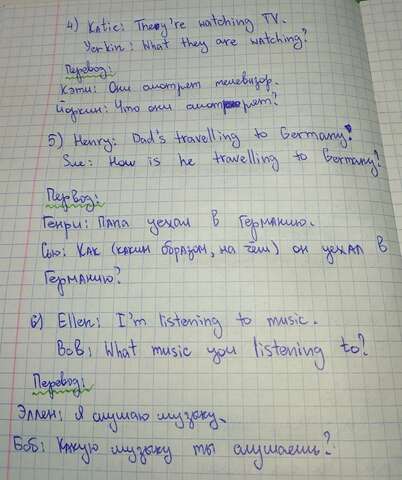 4) Katie: They're watching TV.
Yerkin: What they are watching?
Перевод:
Кэти: Они смотрят телевизор.
Йоркин: Что они смотрят?
5) Henry: Dad's travelling to Germany.
Sue: How is he travelling to Germany?
Перевод:
Генри: Папа уехал в Германию.
Сью: Как (каким образом, на чём) он уехал в
Германию?
6) Ellen: I'm listening to music.
Bob: What music you listening to?
Перевод:
Эллен: Я слушаю музыку.
Боб: Какую музыку ты слушаешь?